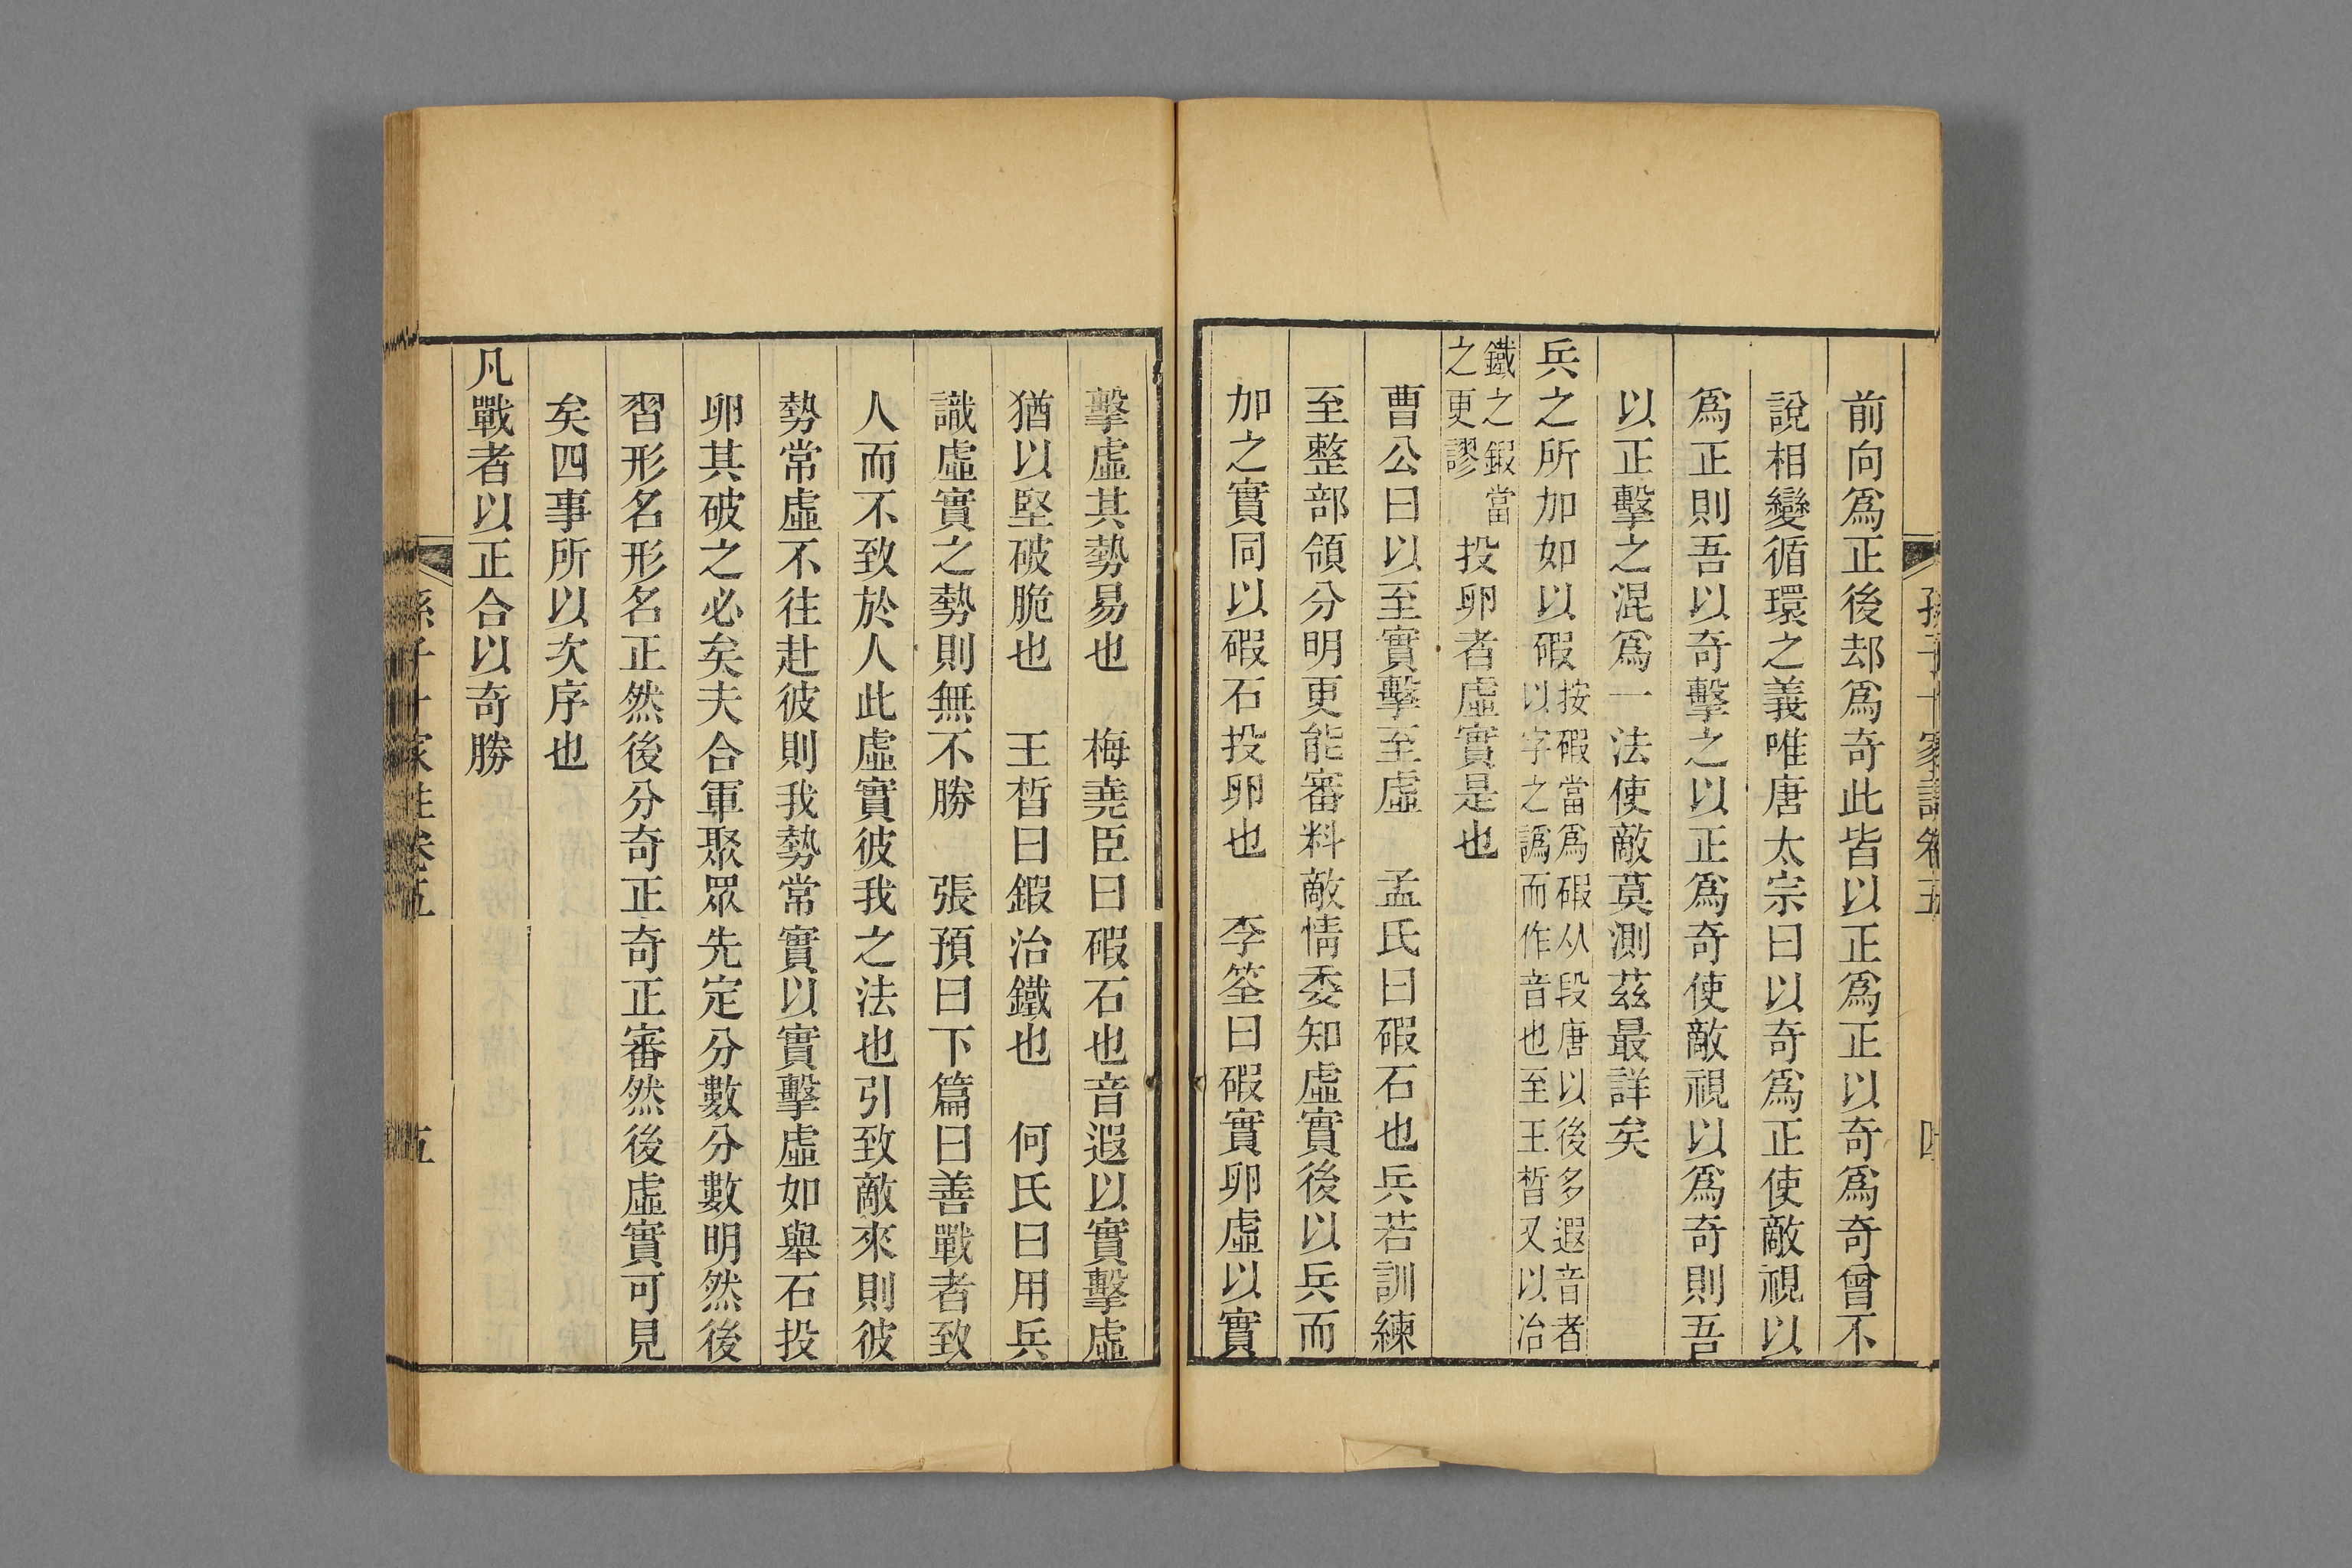 孫子十家註卷五
四
前向爲正後却爲奇此皆以正爲正以奇爲奇曾不
說相變循環之義唯唐太宗曰以奇爲正使敵視以
爲正則吾以奇擊之以正爲奇使敵視以爲奇則吾
以正擊之混爲一法使敵莫測茲最詳矣
兵之所加如以碬
按碬當爲碫从段唐以後多遐音者
以字之譌而作音也至王晳又以冶
鐵之鍜當
之更謬
投卵者虛實是也
曹公曰以至實擊至虛　孟氏曰碬石也兵若訓練
至整部領分明更能審料敵情委知虛實後以兵而
加之實同以碬石投卵也　李筌曰碬實卵虛以實
擊虛其勢易也　梅堯臣曰碬石也音遐以實擊虛
猶以堅破脆也　王晳曰鍜治鐵也　何氏曰用兵
識虛實之勢則無不勝　張預曰下篇曰善戰者致
人而不致於人此虛實彼我之法也引致敵來則彼
勢常虛不往赴彼則我勢常實以實擊虛如舉石投
卵其破之必矣夫合軍聚眾先定分數分數明然後
習形名形名正然後分奇正奇正審然後虛實可見
矣四事所以次序也
凡戰者以正合以奇勝
孫子十家註卷五
五